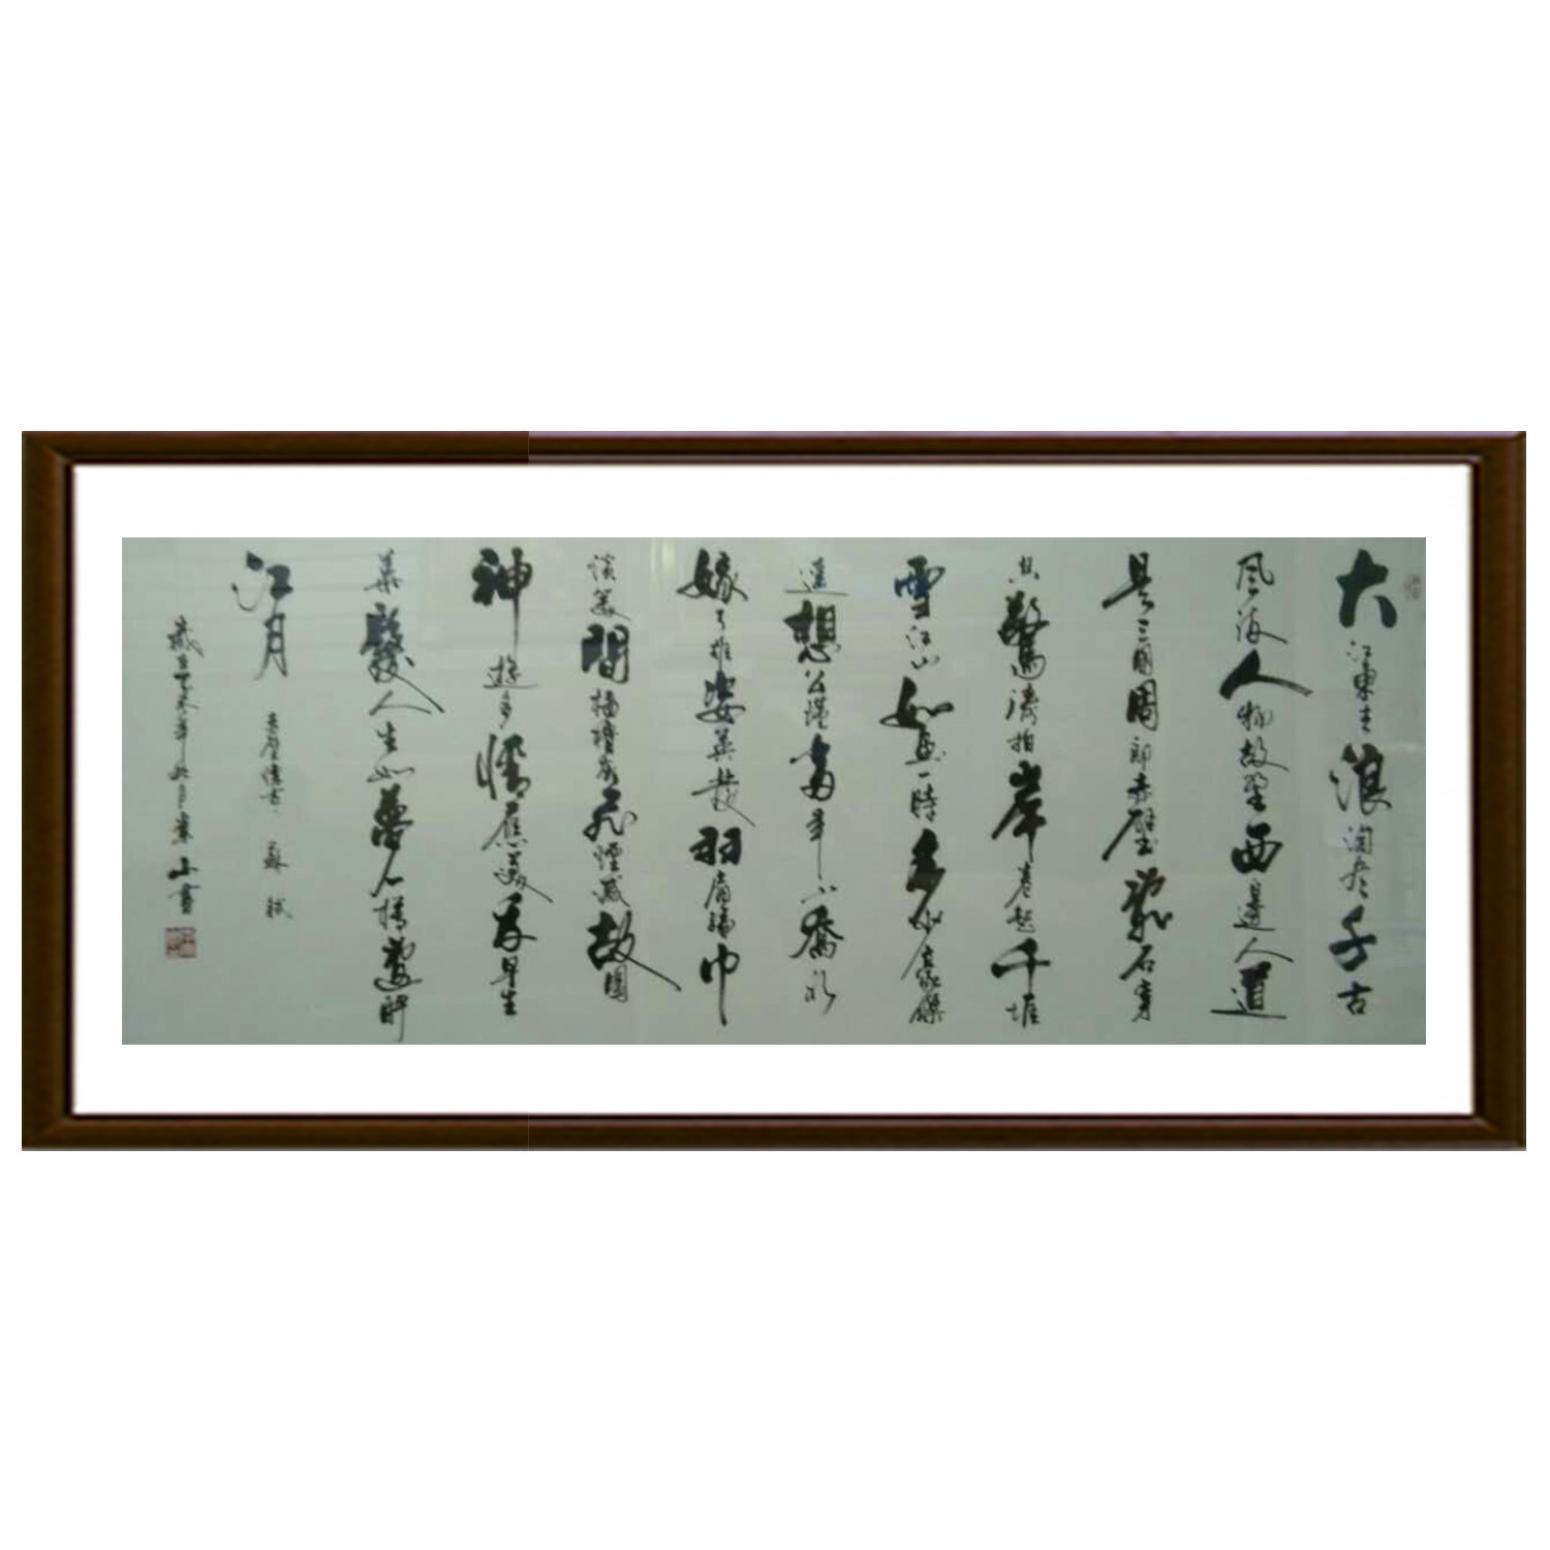 大江東去浪淘盡千古
風流人物故壘西邊人道
是三國周郎赤壁亂石穿
空驚濤拍岸卷起千堆
雪江山如畫一時多少豪傑
遥想公瑾當年小喬初
嫁了雄姿英發羽扇綸巾
談笑間檣櫓灰飛煙滅故國
神遊多情應笑我早生
華髮人生如夢一樽還酹
江月
赤壁懷古 蘇軾
歲在
年秋月
山書